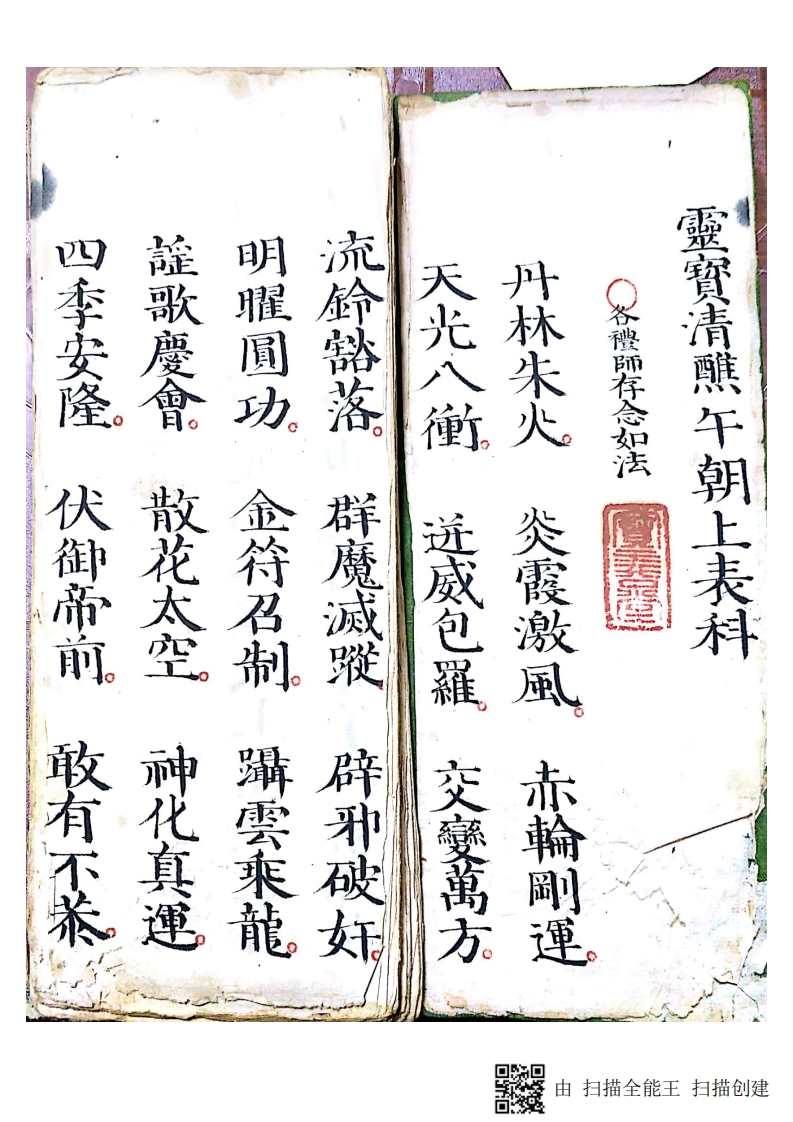 靈寶清醮午朝上表科
各禮師存念如法
丹林朱火。炎霞激風。赤輪剛運。
天光八衝。迸威包羅。交變萬方。
流鈴豁落。群魔滅蹤。辟邪破奸。
明曜圓功。金符召制。躡雲乘龍。
謠歌慶會。散花太空。神化真運。
四季安隆。伏御帝前。敢有不恭。
由 扫描全能王 扫描创建